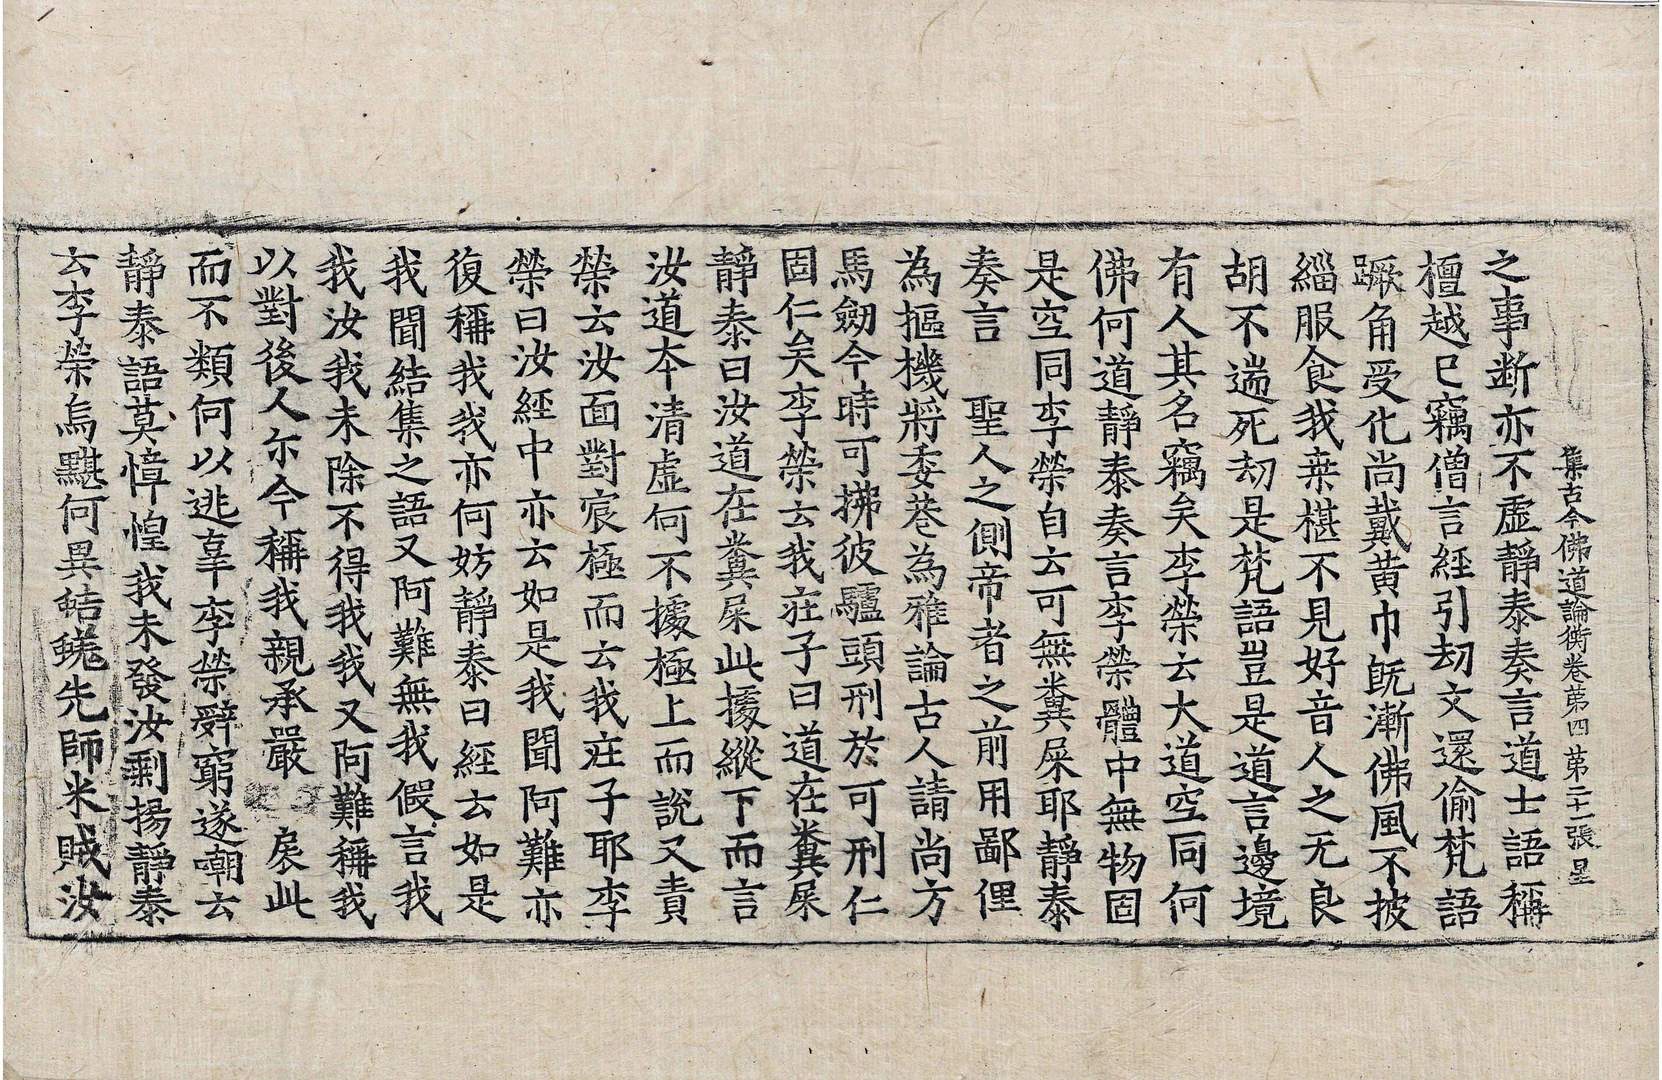 集古今佛道論衡卷第四 第二十一張 星
之事断亦不虛靜泰奏言道士語稱
檀越已竊僧言經引刼文還偷梵語
蹶角受化尚戴黃巾旣漸佛風不披
緇服食我桒椹不見好音人之无良
胡不遄死刼是梵語豈是道言邊境
有人其名竊矣李榮云大道空同何
佛何道靜泰奏言李榮體中無物固
是空同李榮自云可無糞屎耶靜泰
奏言 聖人之側帝者之前用鄙俚
為摳機將委巷為雅論古人請尚方
馬劒今時可拂彼驢頭刑於可刑仁
固仁矣李榮云我莊子曰道在糞屎
靜泰曰汝道在糞屎此據縱下而言
汝道本清虛何不據極上而說又責
榮云汝面對宸極而云我莊子耶李
榮曰汝經中亦云如是我聞阿難亦
復稱我我亦何妨靜泰曰經云如是
我聞結集之語又阿難無我假言我
我汝我未除不得我我又阿難稱我
以對後人尒今稱我親承嚴 扆此
而不類何以逃辜李榮辤窮遂嘲云
靜泰語莫悼惶我未發汝剩揚靜泰
云李榮烏黮何異蛣蜣先師米賊汝